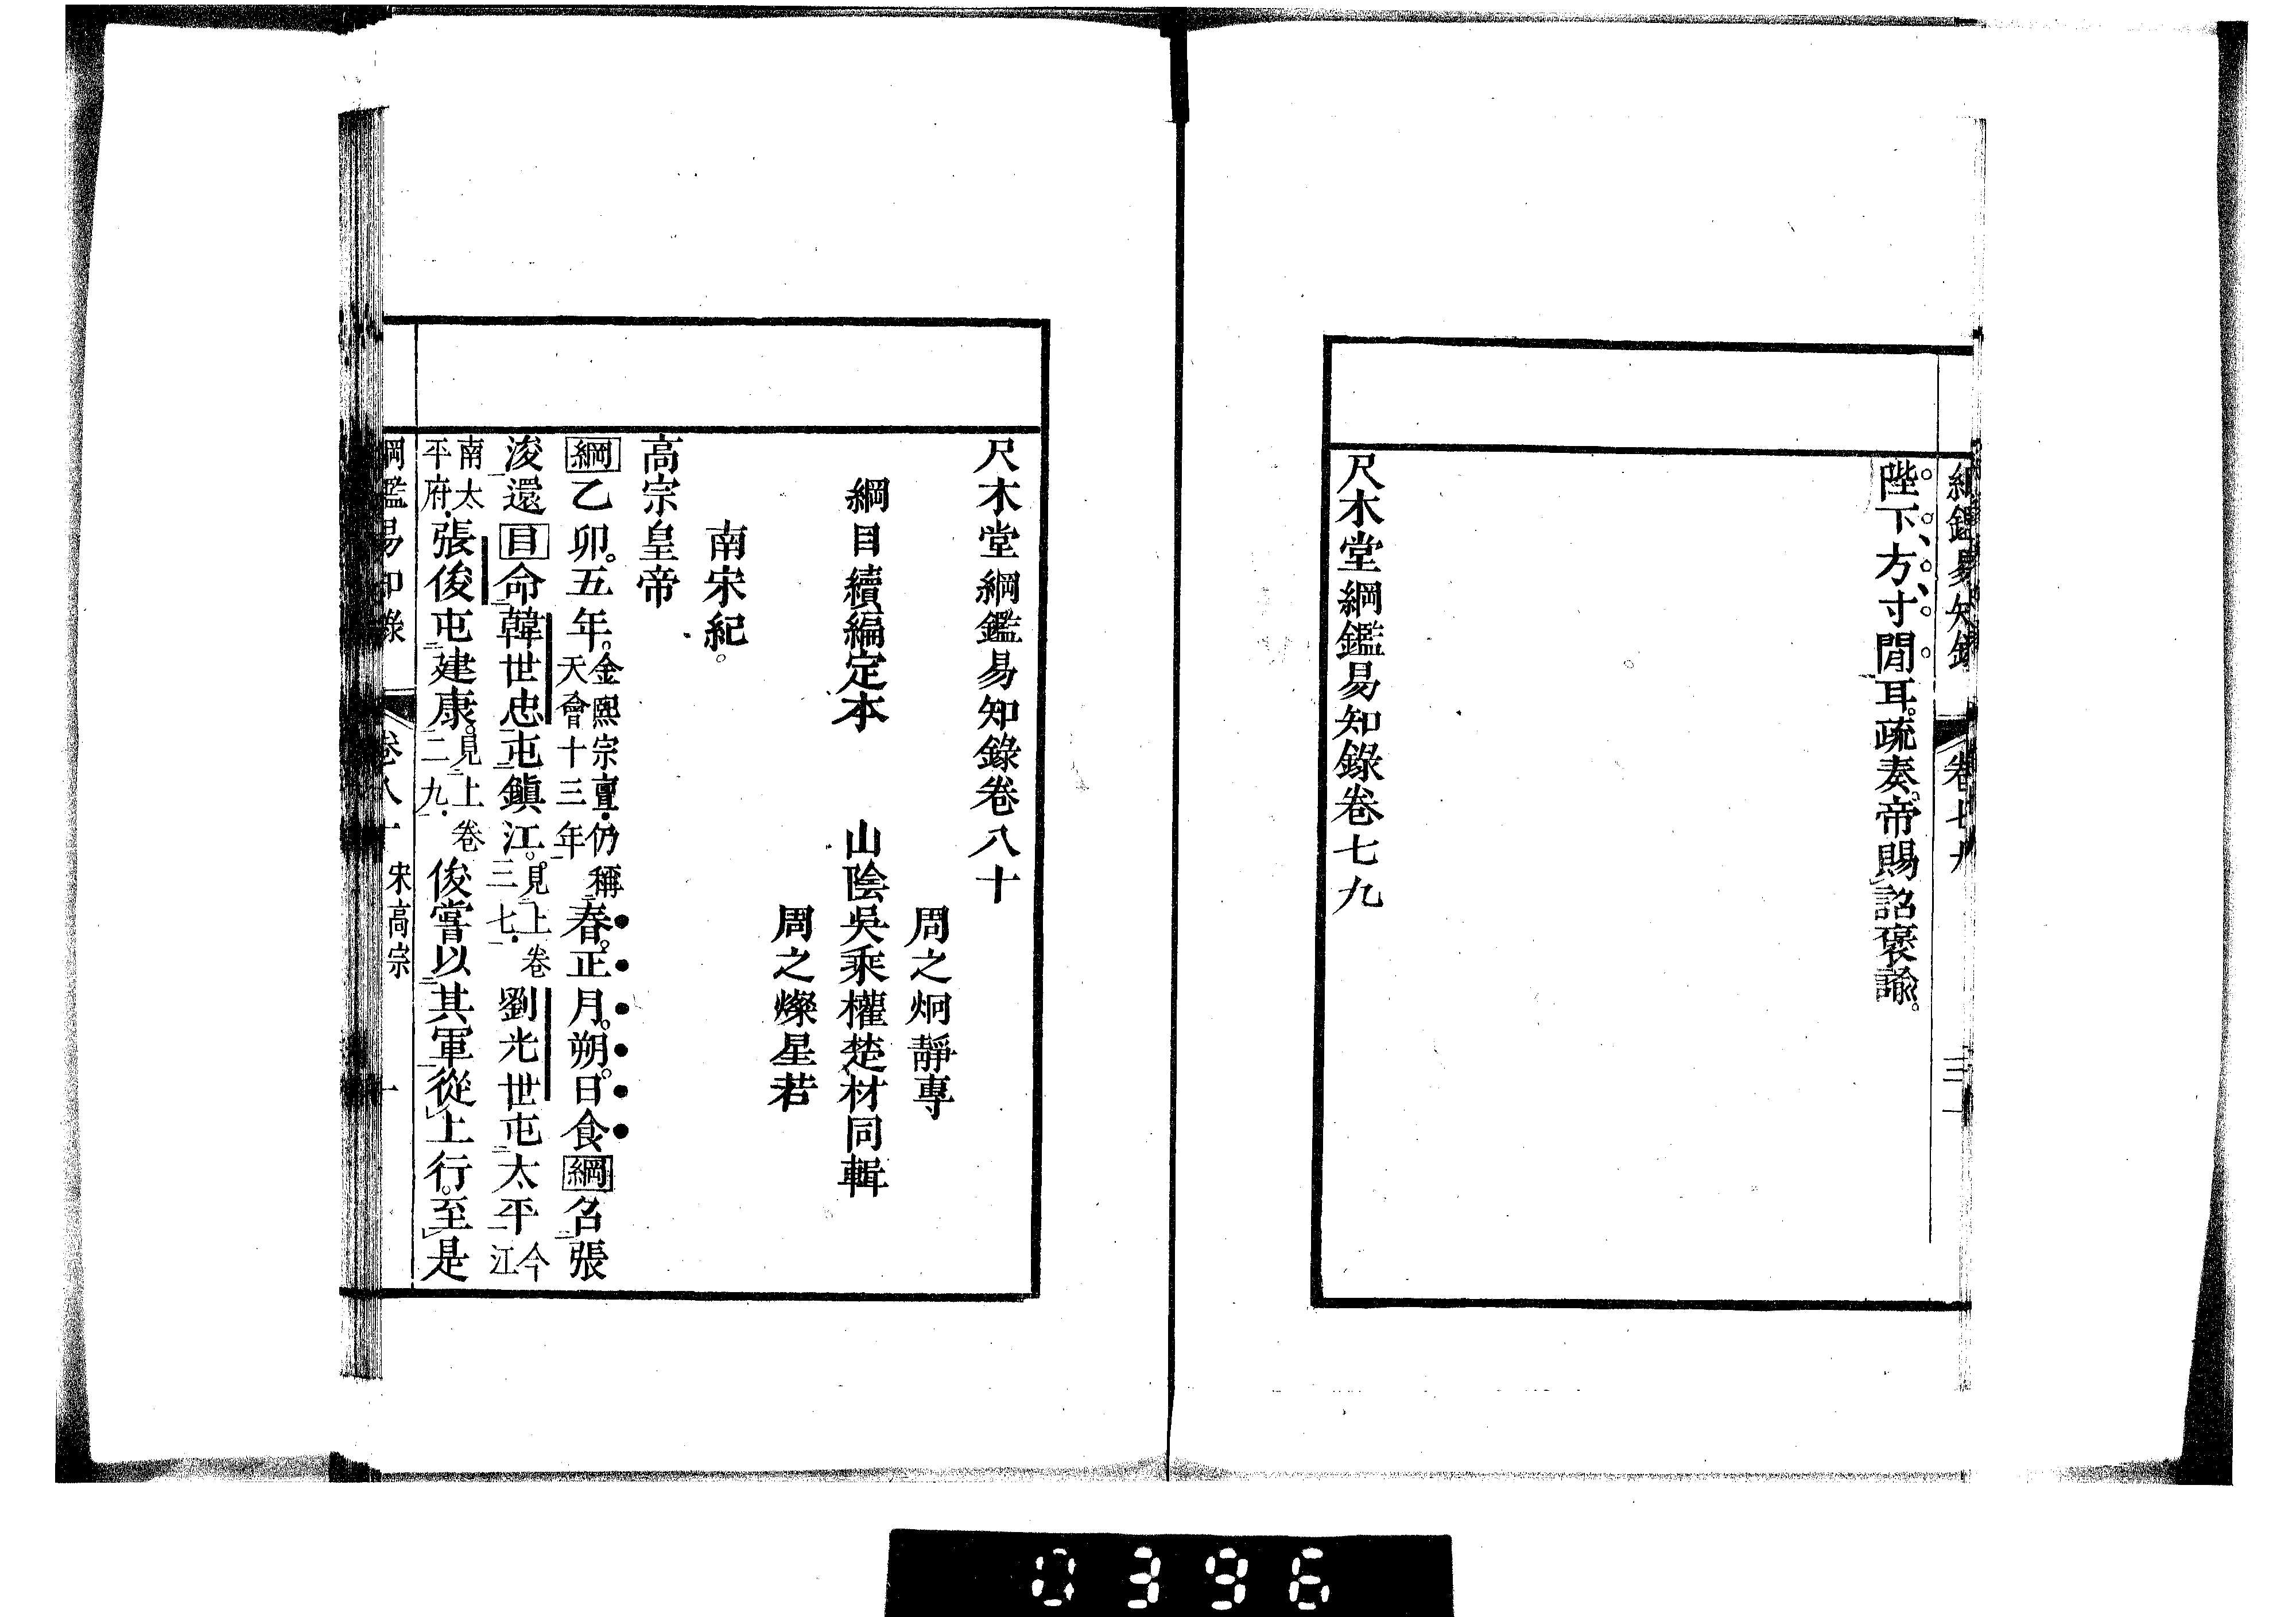 綱鑑易知錄 卷七九 三一
陛下方寸間耳。疏奏。帝賜詔褒諭。
尺木堂綱鑑易知錄卷七九
尺木堂綱鑑易知錄卷八十
周之炯靜專
綱目續編定本 山陰吳乘權楚材同輯
周之燦星若
南宋紀。
高宗皇帝
綱乙卯。五年。金熙宗亶・仍稱天會十三年春。正月。朔。日食綱名張
浚還目命韓世忠屯鎭江。見上卷三七・劉光世屯太平今江
南太平府・張俊屯建康。見上卷二九・俊嘗以其軍從上行。至是
綱鑑易知錄 卷八十 宋高宗 一
0396